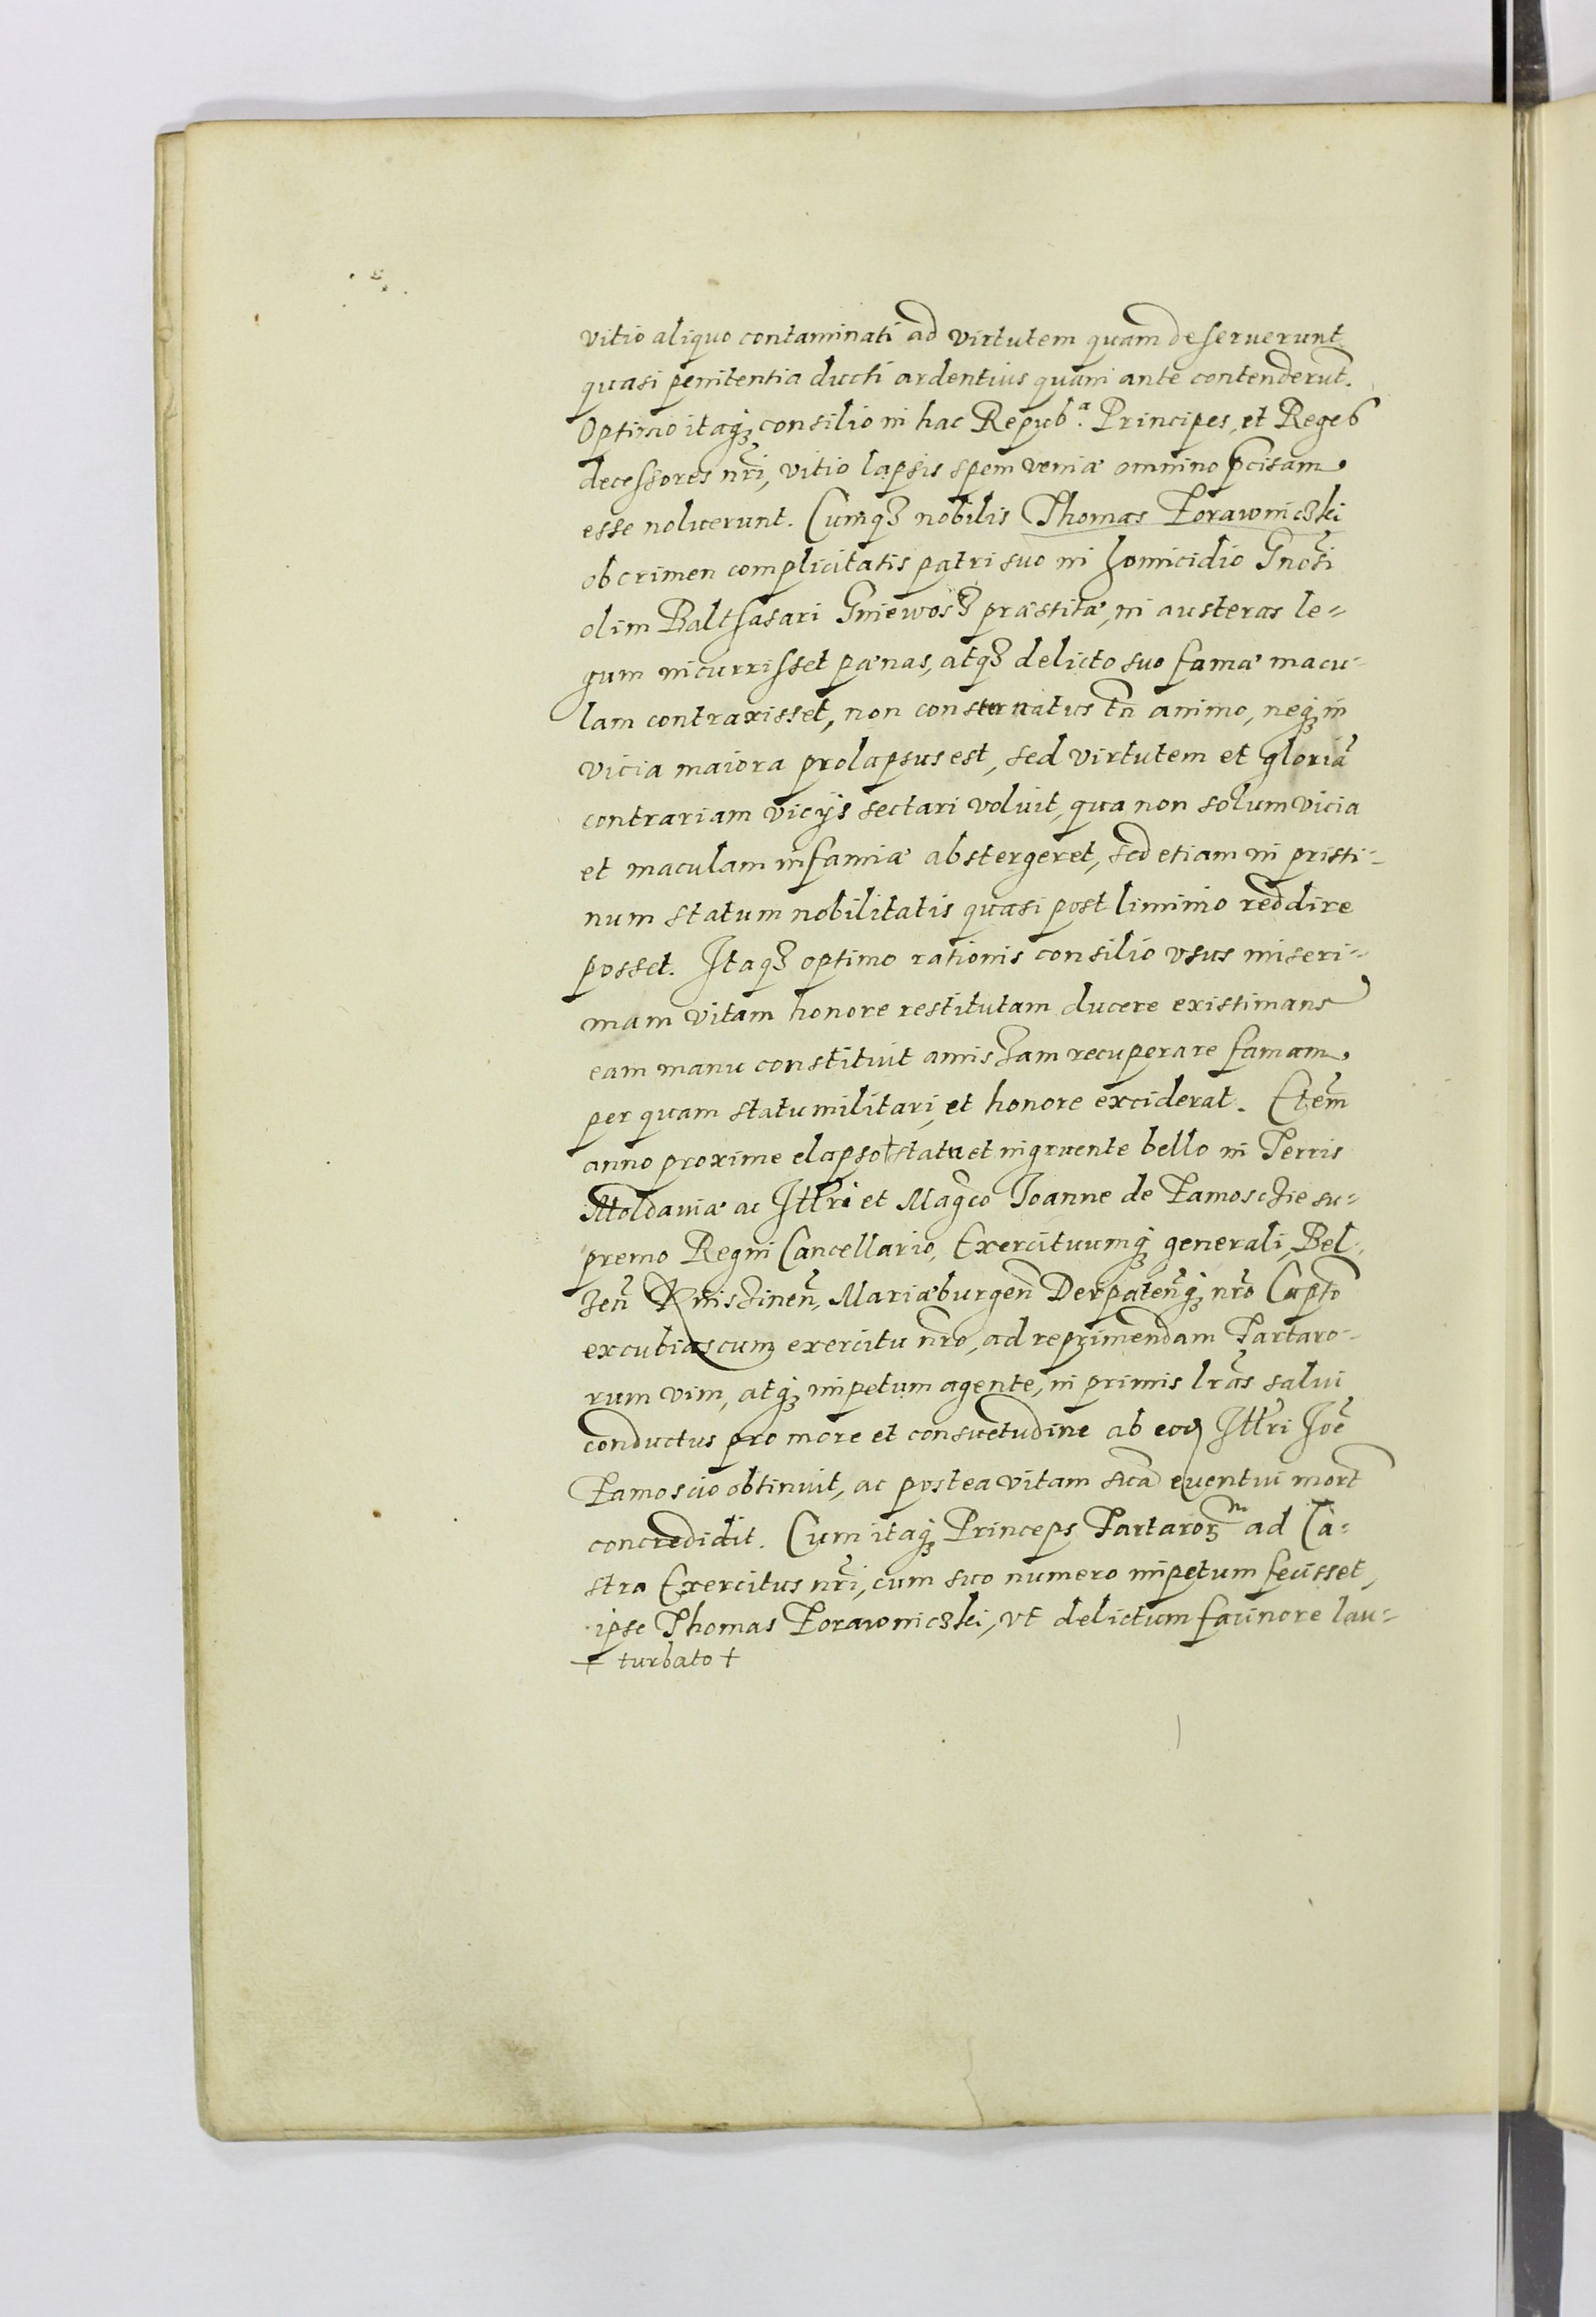 vitio aliquo contaminati ad virtutem quam deseruerunt
quasi penitentia ducti ardentius quam ante contenderũt.
Optimo itaqꝫ consilio in hac Repub.ª Principes, et Reges
decessores nr̃i, vitio lapsis spem veniæ omnino p̃cisam
esse noluerunt. Cumqꝫ nobilis Thomas Zorawniczki
ob crimen complicitatis patri suo in homicidio Gnosi
olim Balthasari Gniewosz præstitæ, in austeras le-
gum incurrisset pænas, atqꝫ delicto suo famæ macu-
lam contraxisset, non consternatus tñ animo, neqꝫ in
vicia maiora prolapsus est, sed virtutem et gloriã
contrariam vicijs sectari voluit, qua non solum vicia
et maculam infamiæ abstergeret, sed etiam in pristi-
num statum nobilitatis quasi post liminio reddire
posset. Itaqꝫ optimo rationis consilio usus miseri-
mam vitam honore restitutam ducere existimans
eam manu constituit amissam recuperare famam
per quam statu militari, et honore exciderat. Eteñ
anno proxime elapso † statu et ingruente bello in Terris
Moldaviæ ac Illri et Magco Joanne de Zamoscie su-
premo Regni Cancellario, Exercituumqꝫ generali, Bel-
zeñ Knisinen̄, Mariæburgeñ Derpateñqꝫ nr̃o Capto
excubias cum exercitu nr̃o, ad reprimendam Tartaro-
rum vim, atqꝫ impetum agente, in primis lr̃as salvi
conductus pro more et consuetudine ab eod Illri Joe
Zamoscio obtinuit, ac postea vitam suã eventui mort
concredidit. Cum itaqꝫ Princeps Tartaroꝝ ad Ca-
stra Exercitus nr̃i, cum suo numero impetum fecisset,
ipse Thomas Zorawniczki, ut delictum facinore lau-
† turbato †